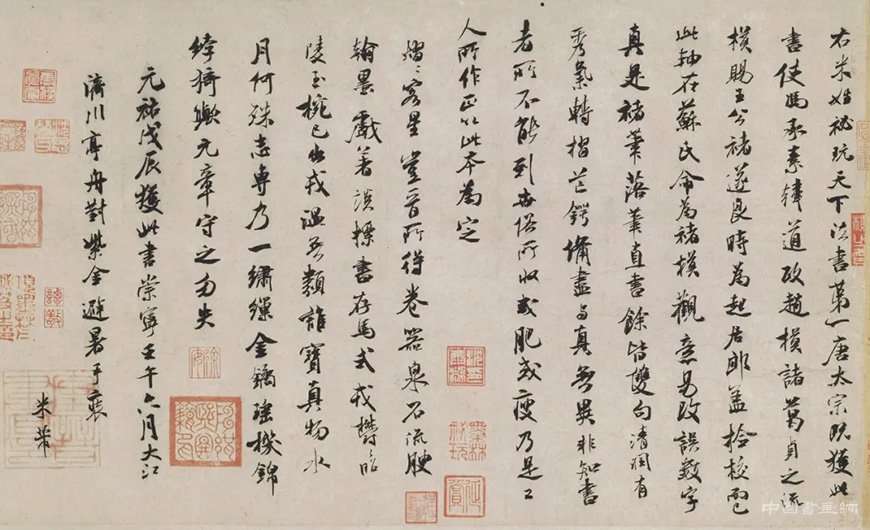 右米姓秘玩天下法書第一唐太宗既獲此
書使馮承素韓道政趙模諸葛貞之流
模賜王公褚遂良時為起居郎蓋撿校而已
此軸在蘇氏命為褚模觀意易改誤數字
真是褚筆落筆直書餘皆雙句清潤有
秀氣轉摺芒鍔備盡與真無異非知書
者所不能到世俗所收或肥或瘦乃是工
人所作正以此本為定
熠〻客星豈晉所得卷器泉石流腴
翰墨戲著談摽書存馬式欝昭
陵玉椀已出戎溫無類誰寶真物水
月何殊志專乃一繡繅金鐍瑤機錦
綷猗歟元章守之勿失
元祐戊辰獲此書崇寧壬午六月大江
濟川亭舟對紫金避暑手裝
米芾
中国書画網